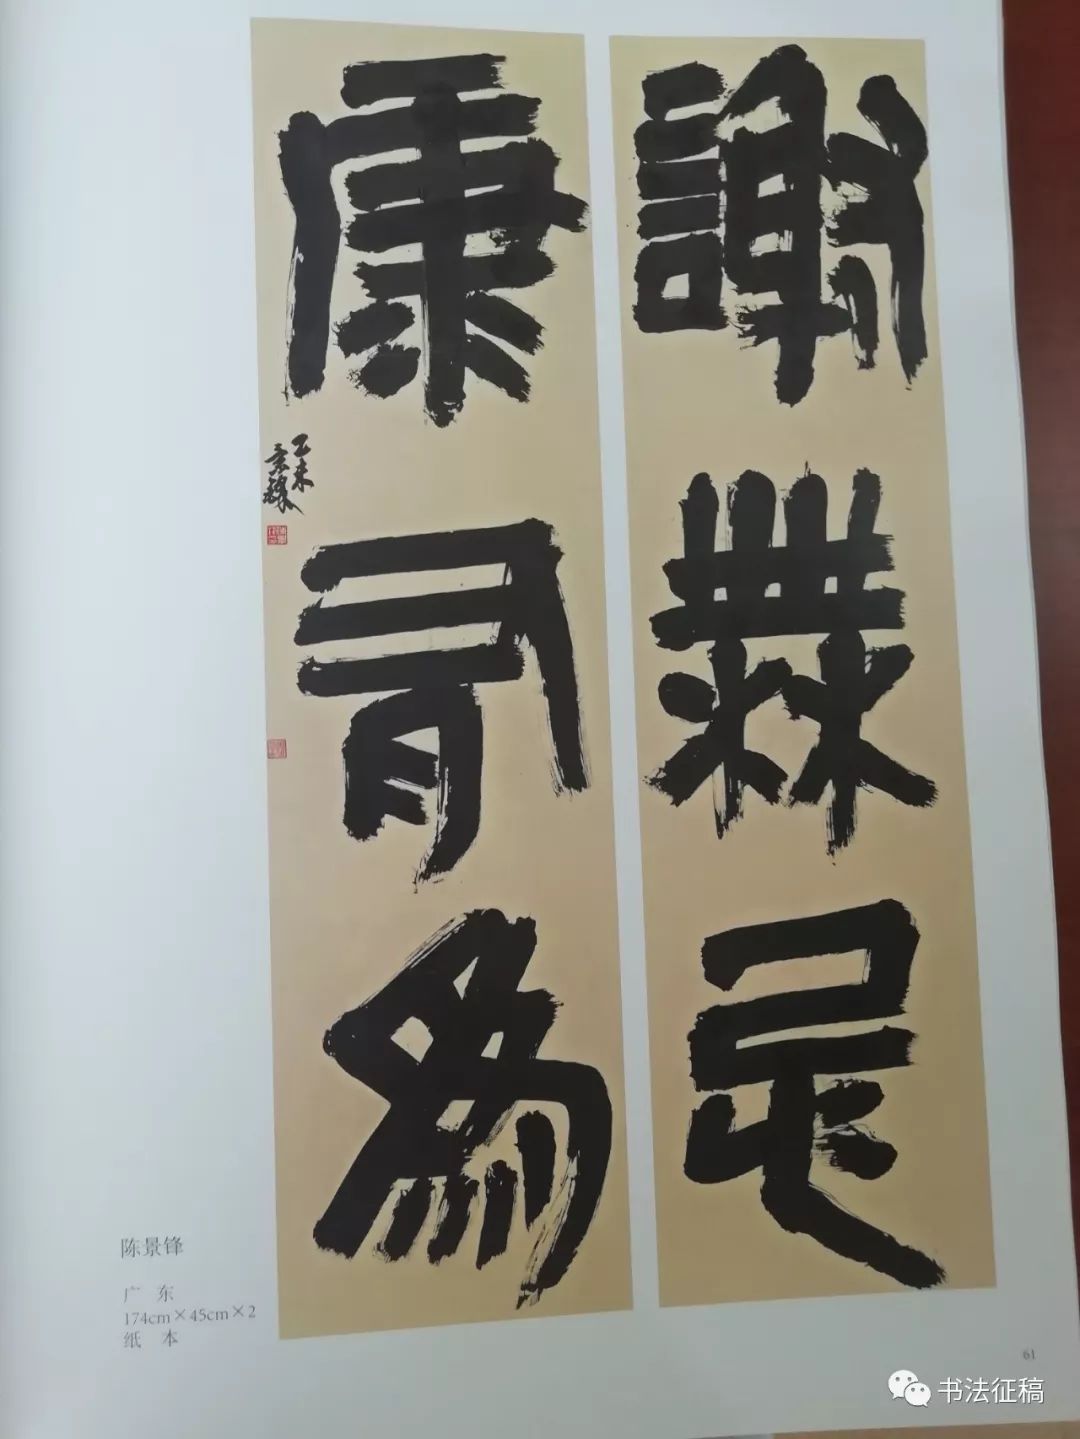 謝無
康有為
乙未
景鋒
陈景锋
广 东
174cm×45cm×2
纸 本
61
书法征稿